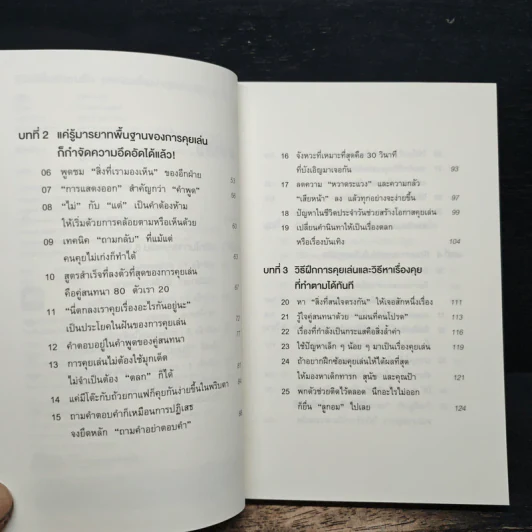 บทที่ 2 แค่รู้มารยาทพื้นฐานของการคุยเล่น
ก็กำจัดความอึดอัดได้แล้ว!
06 พูดชม “สิ่งที่เรามองเห็น” ของอีกฝ่าย 53
07 “การแสดงออก” สำคัญกว่า “คำพูด”
08 “ไม่” กับ “แต่” เป็นคำต้องห้าม
ให้เริ่มด้วยการคล้อยตามหรือเห็นด้วย
09 เทคนิค “ถามกลับ” ที่แม้แต่
คนคุยไม่เก่งก็ทำได้
10 สูตรสำเร็จที่ลงตัวที่สุดของการคุยเล่น
คือคู่สนทนา 80 ตัวเรา 20
11 “นี่ตกลงเราคุยเรื่องอะไรกันอยู่นะ”
เป็นประโยคในฝันของการคุยเล่น
12 คำตอบอยู่ในคำพูดของคู่สนทนา
13 การคุยเล่นไม่ต้องใช้มุกเด็ด
ไม่จำเป็นต้อง “ตลก” ก็ได้
14 แค่มีโต๊ะกับถ้วยกาแฟก็คุยกันง่ายขึ้นในพริบตา
15 ถามคำตอบคำก็เหมือนการปฏิเสธ
จงยึดหลัก “ถามคำอย่าตอบคำ”
16 จังหวะที่เหมาะที่สุดคือ 30 วินาที
ที่บังเอิญมาเจอกัน 93
17 ลดความ “หวาดระแวง” และความกลัว
“เสียหน้า” ลง แล้วทุกอย่างจะง่ายขึ้น 97
18 ปัญหาในชีวิตประจำวันช่วยสร้างโอกาสคุยเล่น 99
19 เปลี่ยนคำนินทาให้เป็นเรื่องตลก
หรือเรื่องบันเทิง 104
บทที่ 3 วิธีฝึกการคุยเล่นและวิธีหาเรื่องคุย
ที่ทำตามได้ทันที
20 หา “สิ่งที่สนใจตรงกัน” ให้เจอสักหนึ่งเรื่อง 111
21 รู้ใจคู่สนทนาด้วย “แผนที่คนโปรด” 113
22 เรื่องที่กำลังเป็นกระแสคือสิ่งล้ำค่า 116
23 ใช้ปัญหาเล็ก ๆ น้อย ๆ มาเป็นเรื่องคุยเล่น 119
24 ถ้าอยากฝึกซ้อมคุยเล่นให้ได้ผลที่สุด
ให้มองหาเด็กทารก สุนัข และคุณป้า 121
25 พกตัวช่วยติดไว้ตลอด นึกอะไรไม่ออก
ก็ยื่น “ลูกอม” ไปเลย 124